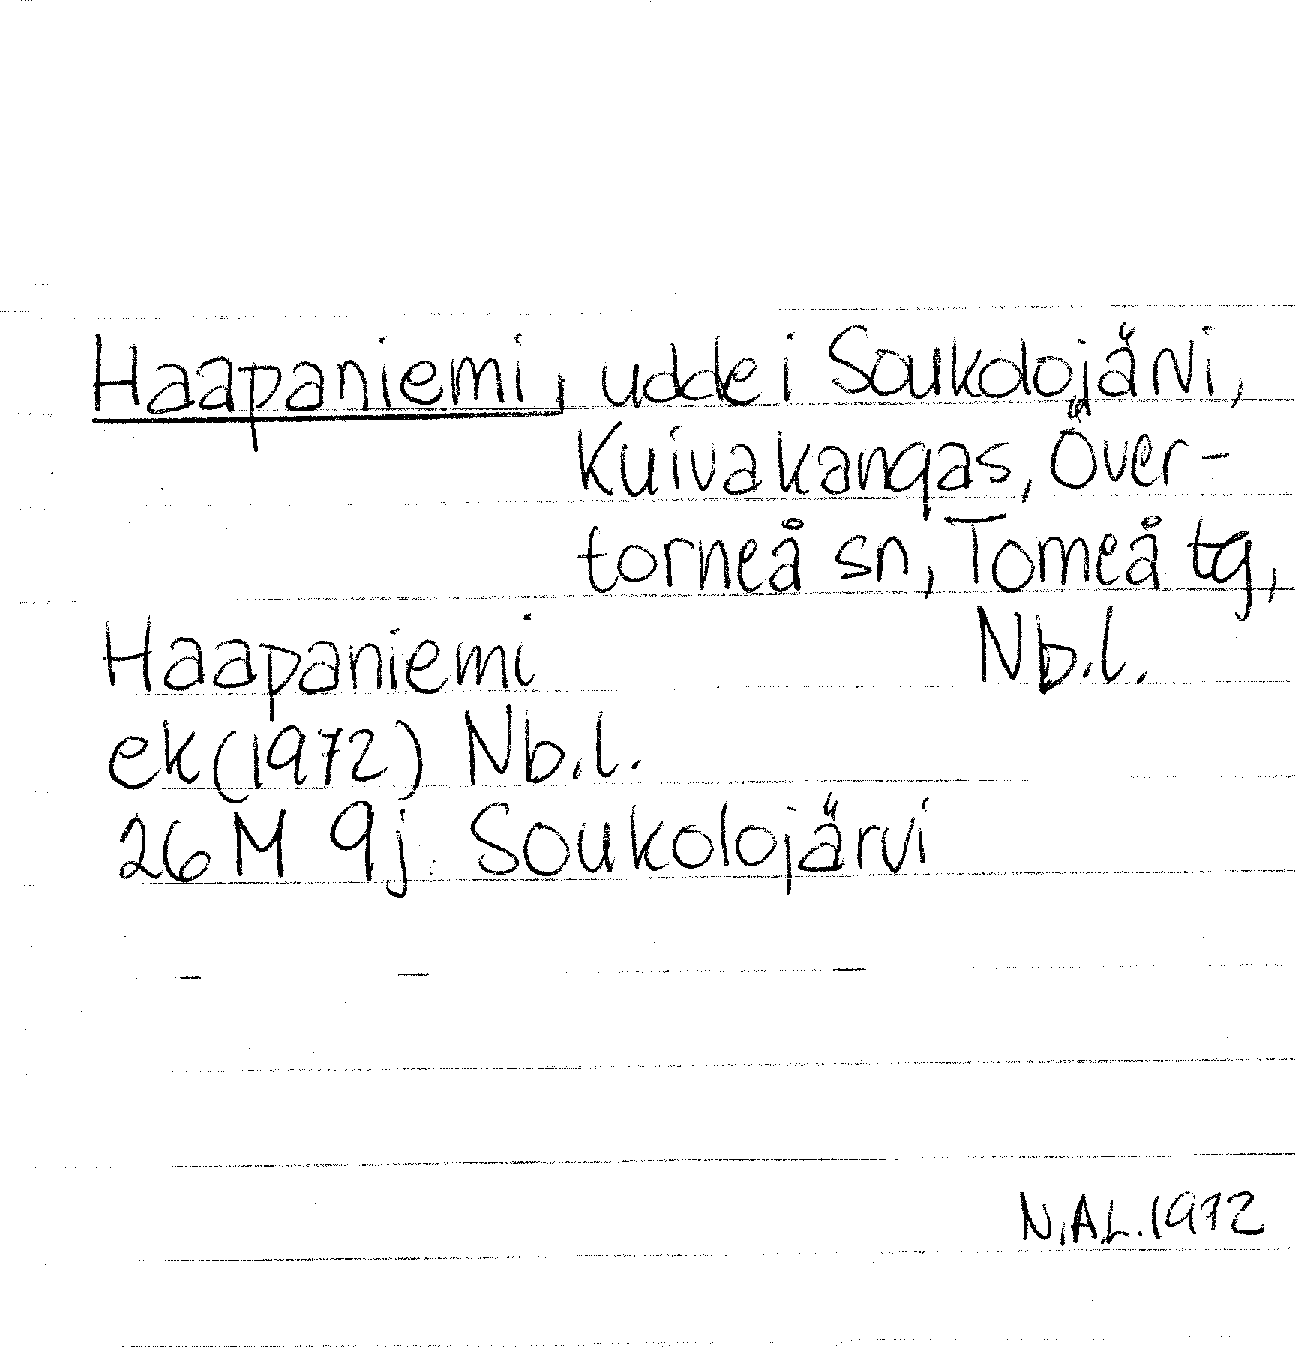 Haapaniemi, udde i Soukolojärvi,
Kuivakangas, Över-
torneå sn, Torneå tg,
Nb.l.
Haapaniemi
ek (1972) Nb.l.
26 M 9j Soukolojärvi
N.A.L. 1972